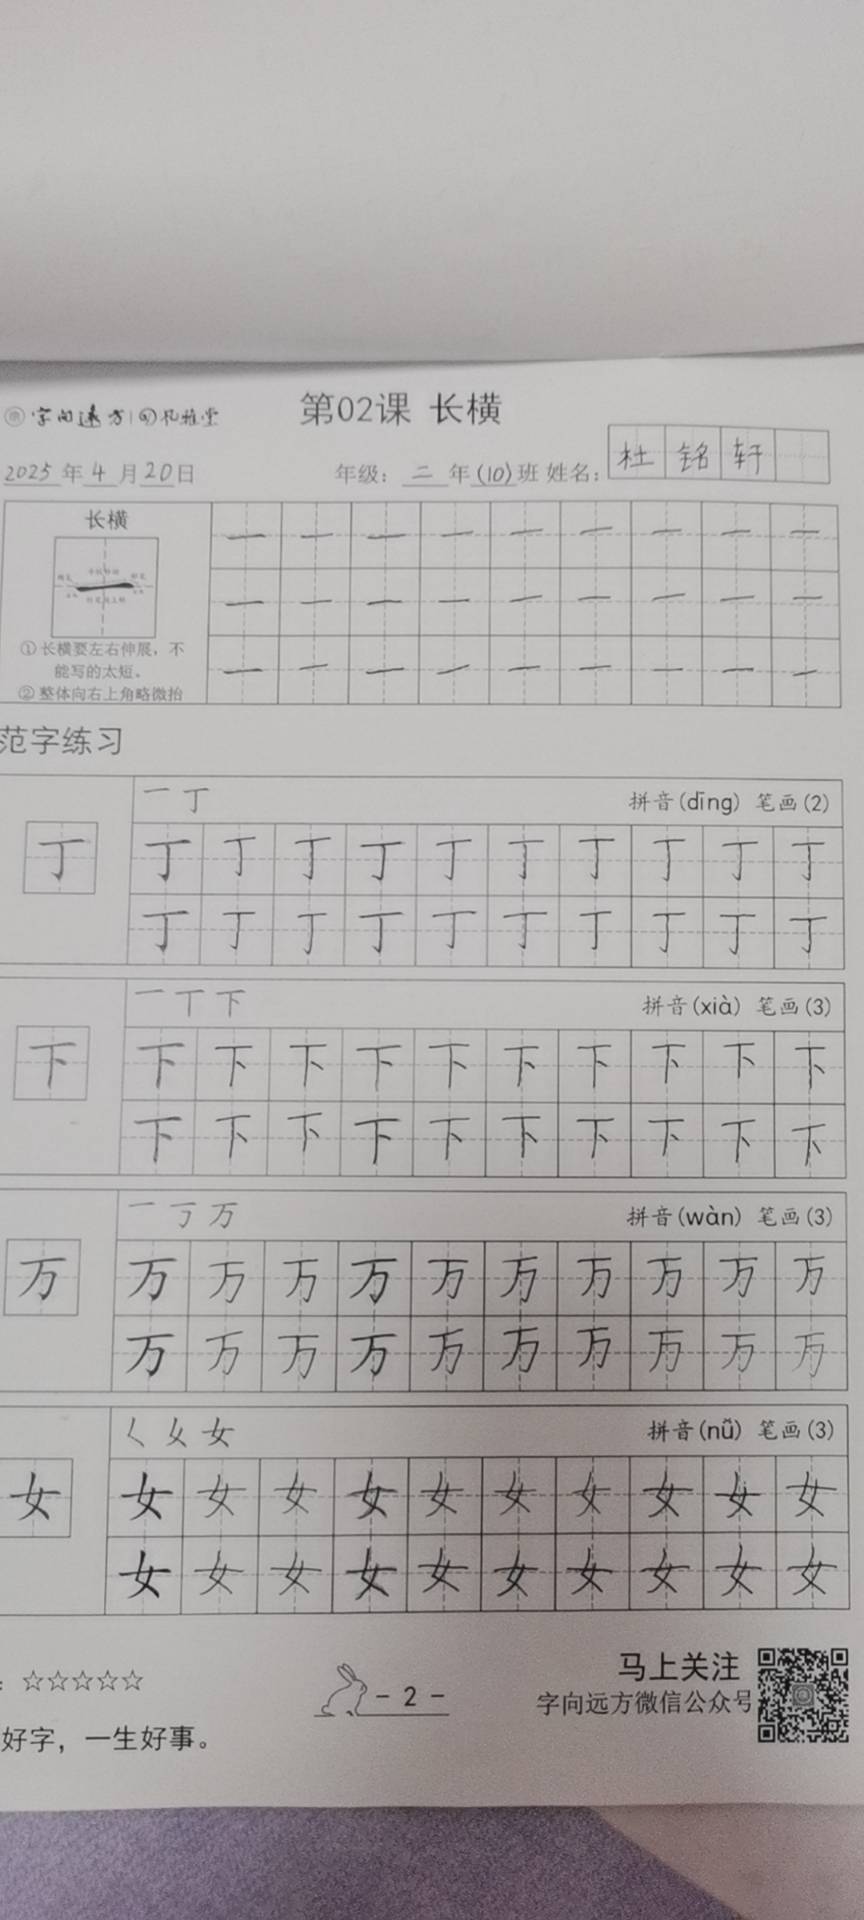 字向远方
第02课 长横
2025年4月20日 年级：二年(10)班 姓名：杜铭轩
长横
①长横要左右伸展，不
能写的太短。
②整体向右上角略微抬
一 一 一 一 一 一 一 一 一
一 一 一 一 一 一 一 一 一
一 一 一 一 一 一 一 一 一
范字练习
一 丁 拼音(dīng) 笔画(2)
丁 丁 丁 丁 丁 丁 丁 丁 丁 丁 丁
丁 丁 丁 丁 丁 丁 丁 丁 丁 丁
一 丅 下 拼音(xià) 笔画(3)
下 下 下 下 下 下 下 下 下 下 下
下 下 下 下 下 下 下 下 下 下
一 丂 万 拼音(wàn) 笔画(3)
万 万 万 万 万 万 万 万 万 万 万
万 万 万 万 万 万 万 万 万 万
女 拼音(nǚ) 笔画(3)
女 女 女 女 女 女 女 女 女 女 女
女 女 女 女 女 女 女 女 女 女
：☆☆☆☆☆
好字，一生好事。
- 2 -
马上关注
字向远方微信公众号